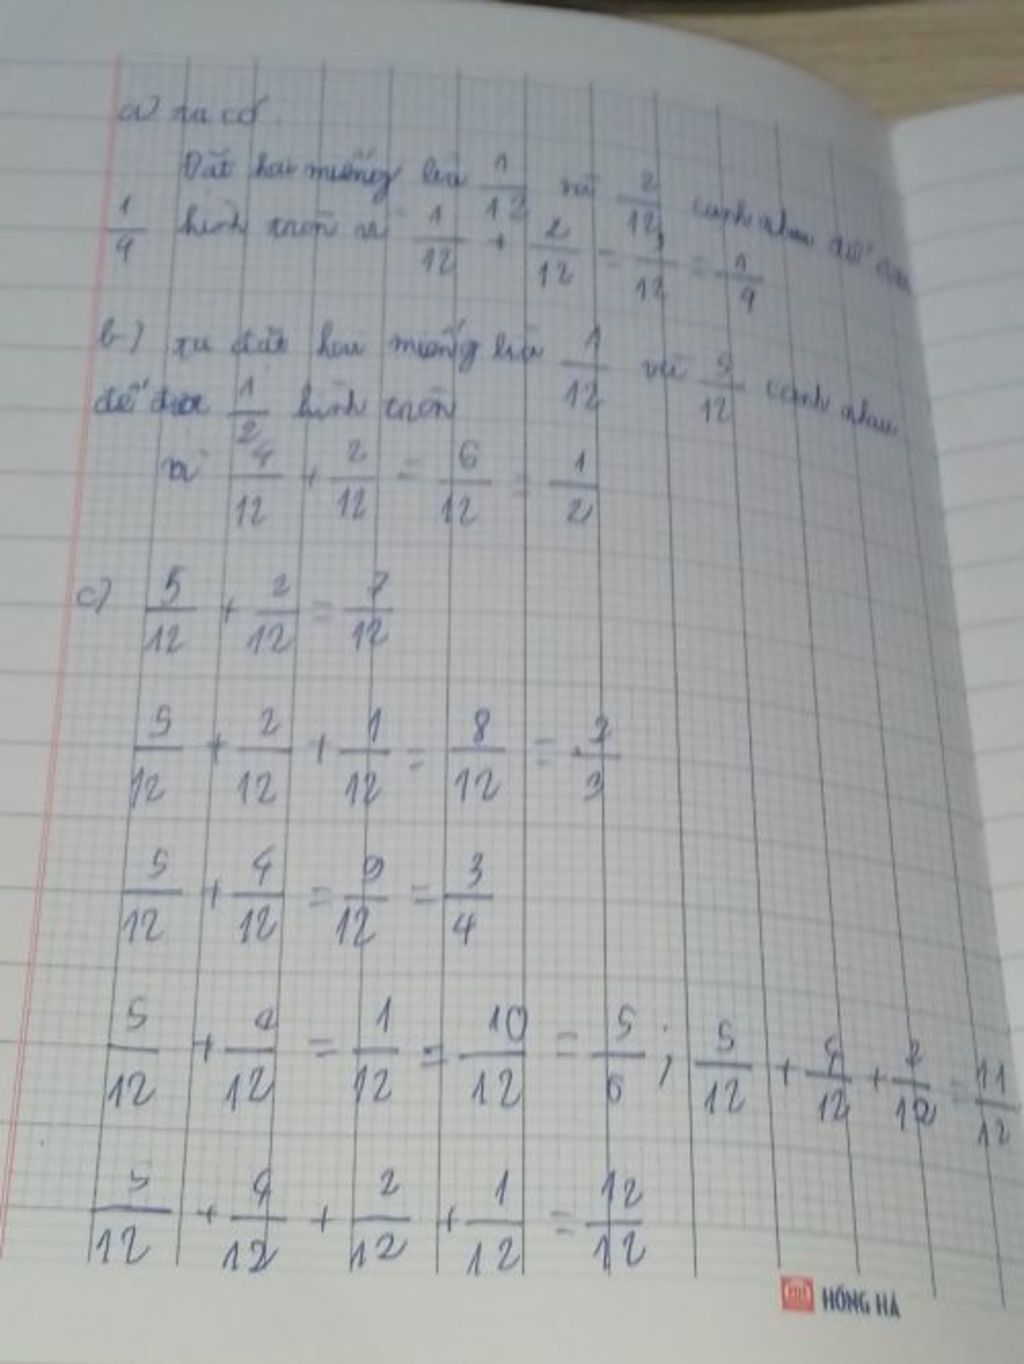 a) ta có.
Đặt hai miếng bìa 1/12 và 2/12 cạnh nhau để được
1/4 hình tròn vì 1/12 + 2/12 = 3/12 = 1/4
b) ta đặt hai miếng bìa 1/12 và 5/12 cạnh nhau
để được 1/2 hình tròn
vì 4/12 + 2/12 = 6/12 = 1/2
c) 5/12 + 2/12 = 7/12
5/12 + 2/12 + 1/12 = 8/12 = 2/3
5/12 + 4/12 = 9/12 = 3/4
5/12 + 4/12 = 1/12 = 10/12 = 5/6 ; 5/12 + 4/12 + 2/12 = 11/12
5/12 + 4/12 + 2/12 + 1/12 = 12/12
HỒNG HÀ